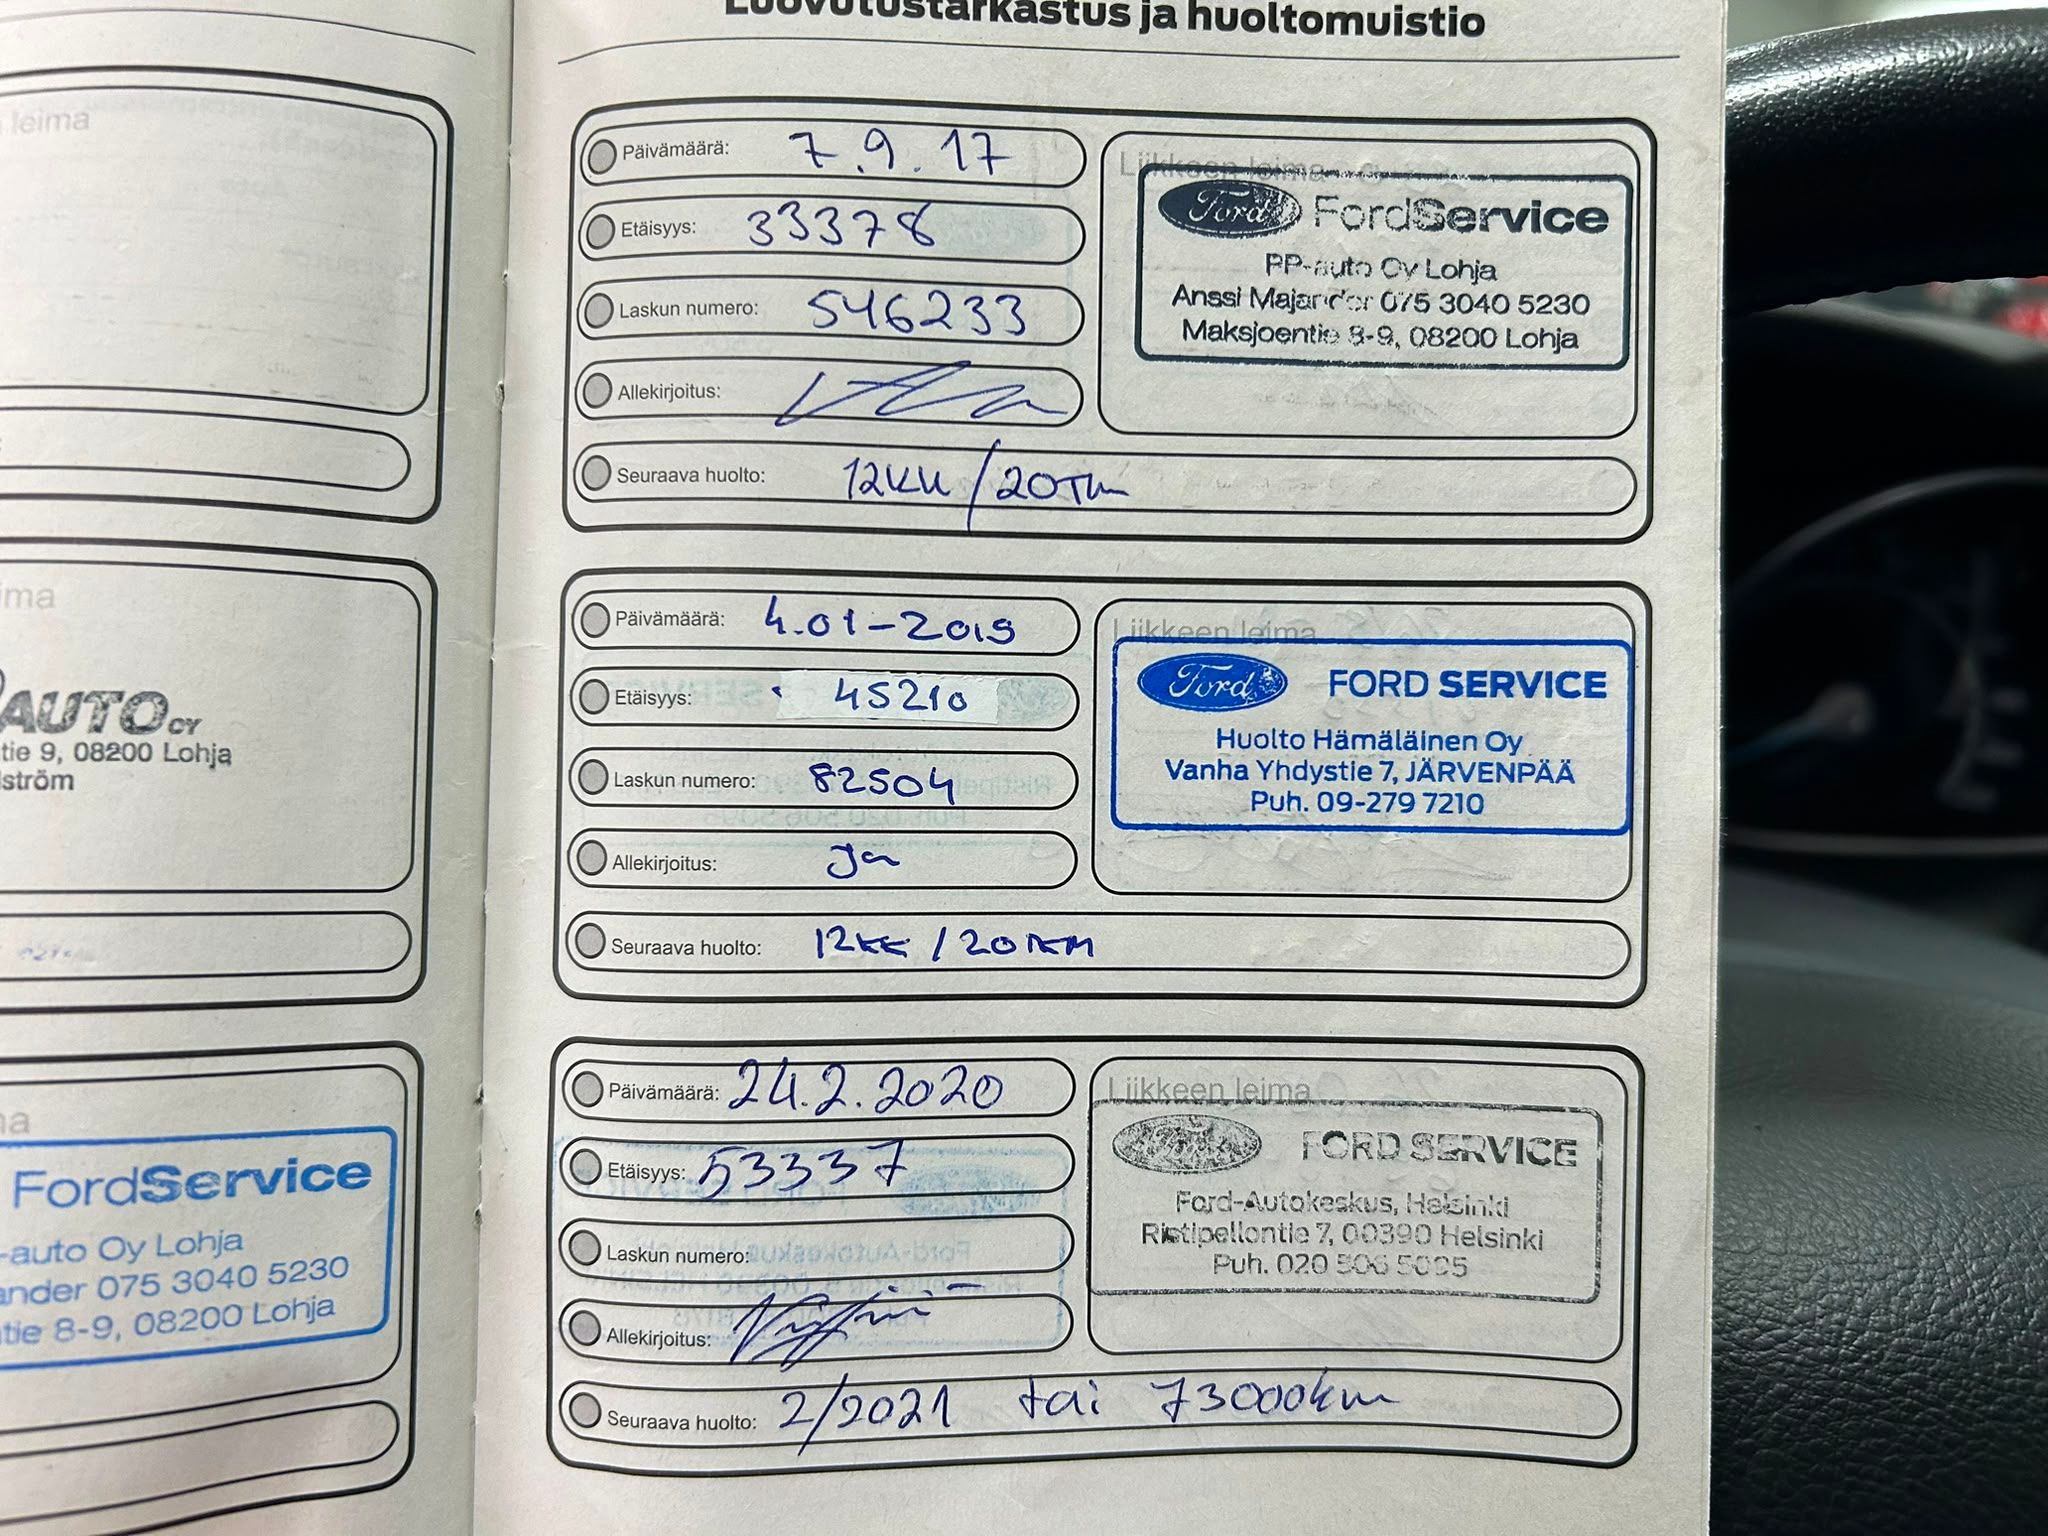 Luovutustarkastus ja huoltomuistio
leima
leima
AUTO OY
tie 9, 08200 Lohja
ström
FordService
-auto Oy Lohja
ander 075 3040 5230
tie 8-9, 08200 Lohja
Päivämäärä: 7.9.17
Etäisyys: 33378
Laskun numero: 546233
Allekirjoitus:
Seuraava huolto: 12KK/20TKM
Liikkeen leima
Ford FordService
PP-auto Oy Lohja
Anssi Majander 075 3040 5230
Maksjoentie 8-9, 08200 Lohja
Päivämäärä: 4.01-2019
Etäisyys: 45210
Laskun numero: 82504
Allekirjoitus:
Seuraava huolto: 12KK / 20TKM
Liikkeen leima
Ford FORD SERVICE
Huolto Hämäläinen Oy
Vanha Yhdystie 7, JÄRVENPÄÄ
Puh. 09-279 7210
Päivämäärä: 24.2.2020
Etäisyys: 53337
Laskun numero:
Allekirjoitus:
Seuraava huolto: 2/2021 tai 73000km
Liikkeen leima
Ford FORD SERVICE
Ford-Autokeskus, Helsinki
Ristipellontie 7, 00390 Helsinki
Puh. 020 506